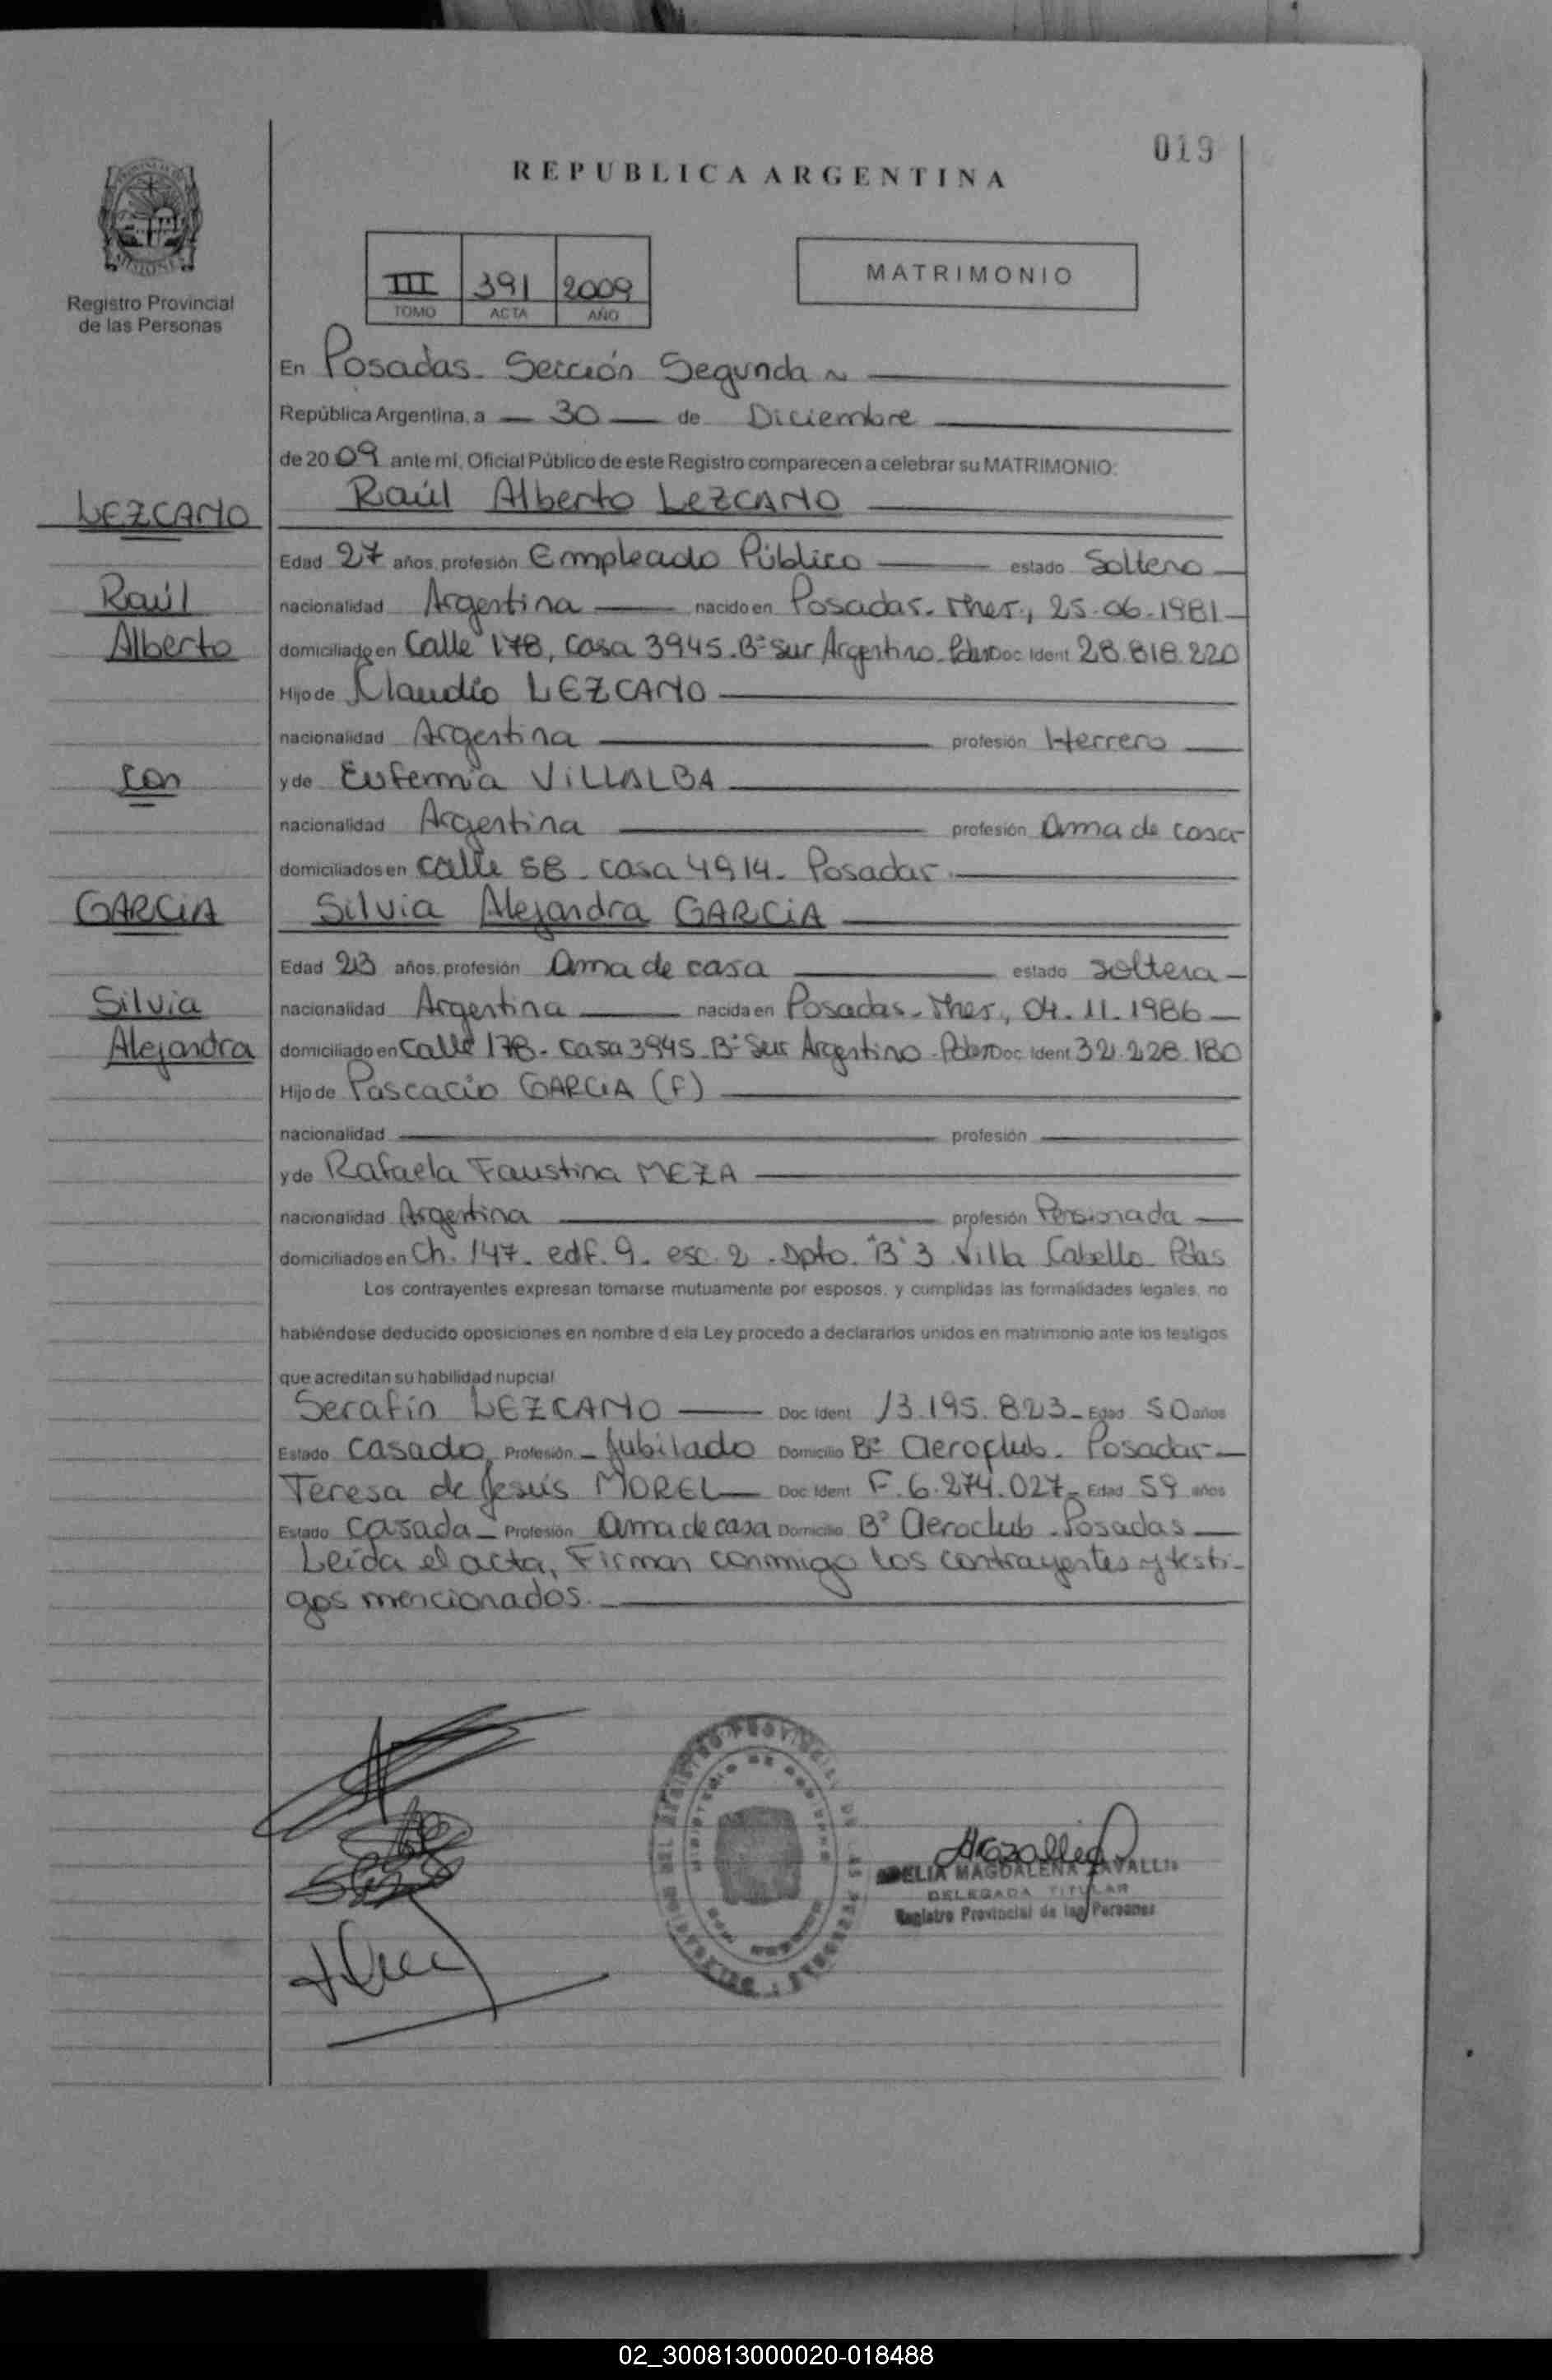 019
REPUBLICA ARGENTINA
III 391 2009
TOMO ACTA AÑO
MATRIMONIO
Registro Provincial
de las Personas
En Posadas - Sección Segunda
República Argentina, a 30 de Diciembre
de 2009 ante mí, Oficial Público de este Registro comparecen a celebrar su MATRIMONIO:
LEZCANO
Raúl Alberto LEZCANO
Edad 27 años, profesión Empleado Público estado Soltero
Raúl
nacionalidad Argentina nacido en Posadas - Mnes., 25-06-1981
Alberto
domiciliado en Calle 178, casa 3945 - Bº Sur Argentino - Pdas Doc Ident 28.818.220
Hijo de Claudio LEZCANO
nacionalidad Argentina profesión Herrero
con
y de Eufemia VILLALBA
nacionalidad Argentina profesión Ama de casa
domiciliados en calle 5B - casa 4914 - Posadas
GARCIA
Silvia Alejandra GARCIA
Edad 23 años, profesión Ama de casa estado soltera
Silvia
nacionalidad Argentina nacida en Posadas - Mnes., 04-11-1986
Alejandra
domiciliado en Calle 178 - casa 3945 - Bº Sur Argentino - Pdas Doc Ident 32.228.180
Hijo de Pascacio GARCIA (F)
nacionalidad profesión
y de Rafaela Faustina MEZA
nacionalidad Argentina profesión Pensionada
domiciliados en Ch. 147 - edf. 9 - esc. 2 - Dpto. "B" 3 Villa Cabello - Pdas
Los contrayentes expresan tomarse mutuamente por esposos, y cumplidas las formalidades legales, no
habiéndose deducido oposiciones en nombre d ela Ley procedo a declararlos unidos en matrimonio ante los testigos
que acreditan su habilidad nupcial
Serafín LEZCANO Doc Ident 13.195.823 - Edad 50 años
Estado Casado Profesión Jubilado Domicilio Bº Aeroclub - Posadas
Teresa de Jesús MOREL Doc Ident F. 6.274.027 - Edad 59 años
Estado Casada Profesión Ama de casa Domicilio Bº Aeroclub - Posadas
Leída el acta, Firman conmigo los contrayentes y testi-
gos mencionados.
DELIA MAGDALENA ZAVALLIA
DELEGADA TITULAR
Registro Provincial de las Personas
02_300813000020-018488